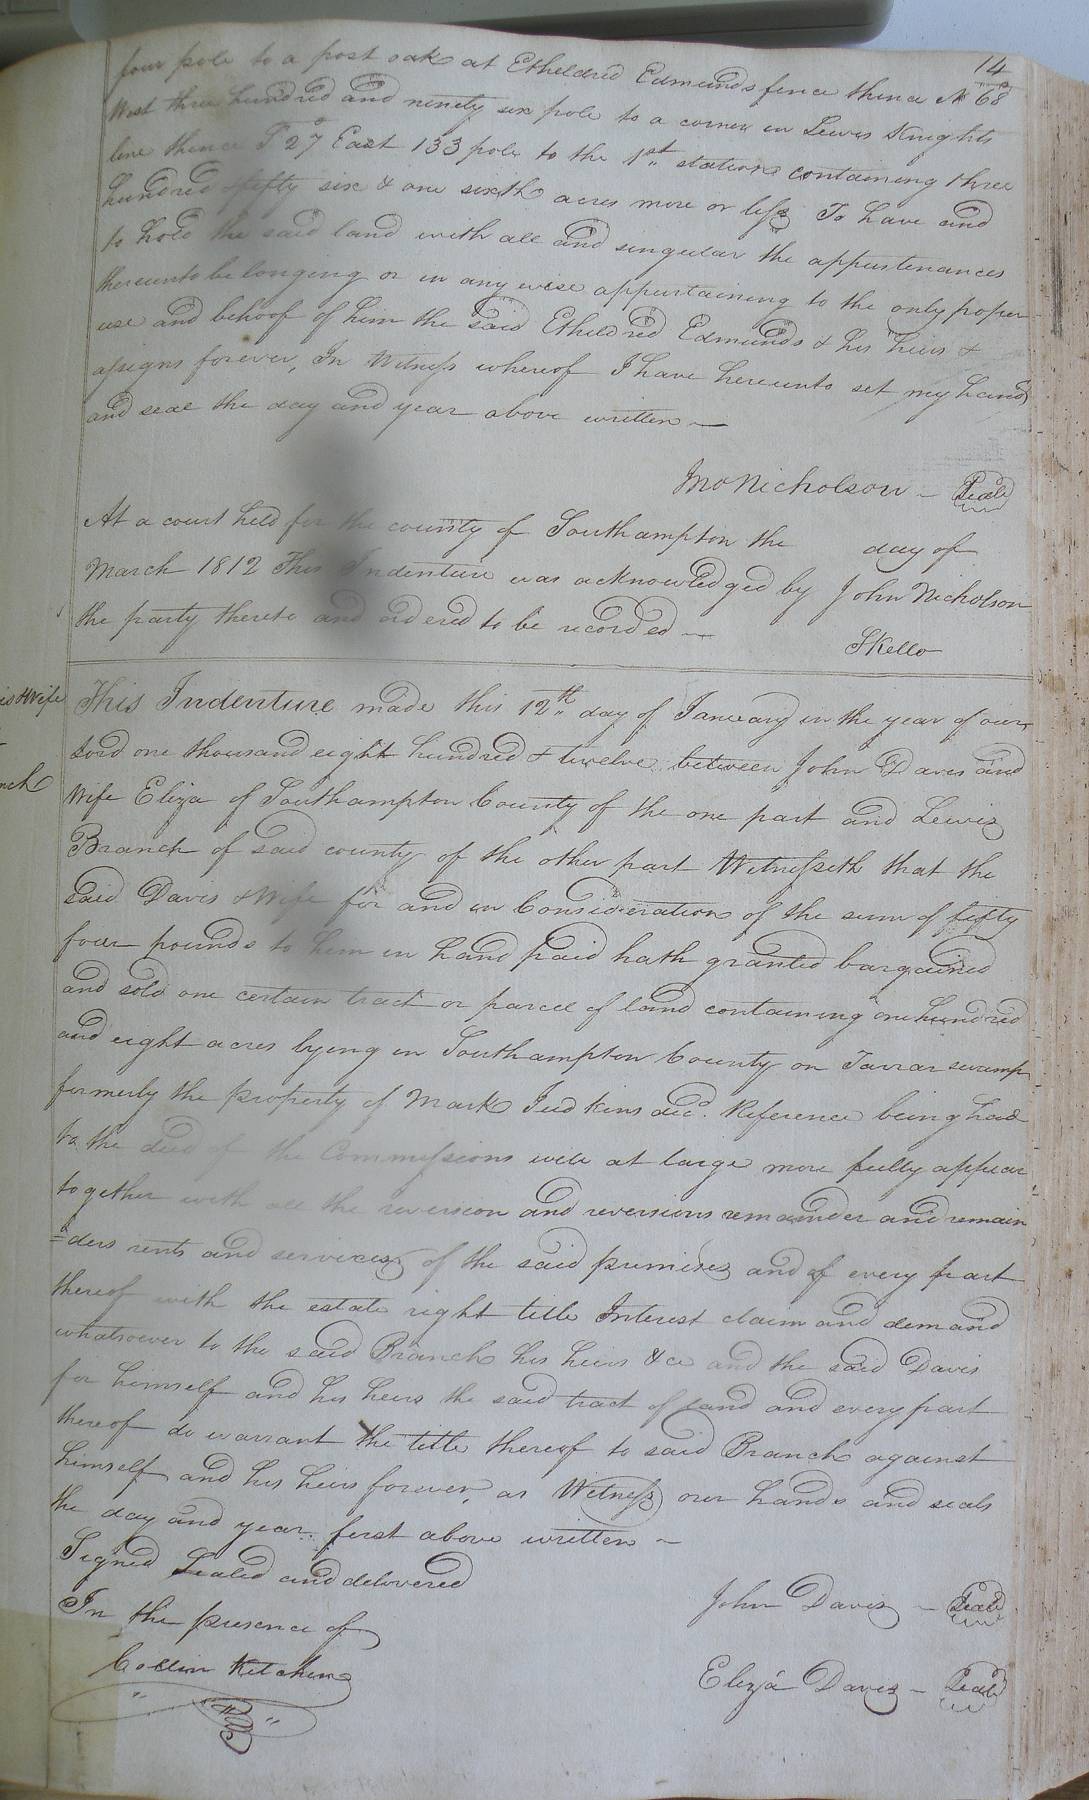 14
four pole to a post oak at Etheldred Edmunds fence thence N 68
West three hundred and ninety six pole to a corner in Lewis Knights
line thence S 27 East 133 pole to the 1st station containing three
hundred & fifty six & one sixth acres more or less To have and
to hold the said land with all and singular the appurtenances
thereunto belonging or in any wise appurtaining to the only proper
use and behoof of him the said Etheldred Edmunds & his heirs &
assigns forever, In Witness whereof I have hereunto set my hand
and seal the day and year above written —
Jno Nicholson - Seal
At a court held for the county of Southampton the day of
March 1812 This Indenture was acknowledged by John Nicholson
the party thereto and ordered to be recorded —
SKello
is & Wife
nch
This Indenture made this 12th day of January in the year of our
Lord one thousand eight hundred & twelve between John Davis and
Wife Eliza of Southampton County of the one part and Lewis
Branch of said county of the other part Witnesseth that the
said Davis & Wife for and in Consideration of the sum of fifty
four pounds to him in hand paid hath granted bargained
and sold one certain tract or parcel of land containing one hundred
and eight acres lying in Southampton County on Tarrar swamp
formerly the property of Mark Judkins decd. Reference being had
to the deed of the Commissions will at large more fully appear
together with all the reversion and reversions remainder and remain
=ders rents and services of the said premises and of every part
thereof with the estate right title Interest claim and demand
whatsoever to the said Branch his heirs &ca and the said Davis
for himself and his heirs the said tract of land and every part
thereof do warrant the title thereof to said Branch against
himself and his heirs forever, as Witness our hands and seals
the day and year first above written —
Signed Sealed and delivered
In the presence of
John Davis - Seal
Collin Kitchen
Eliza Davis - Seal